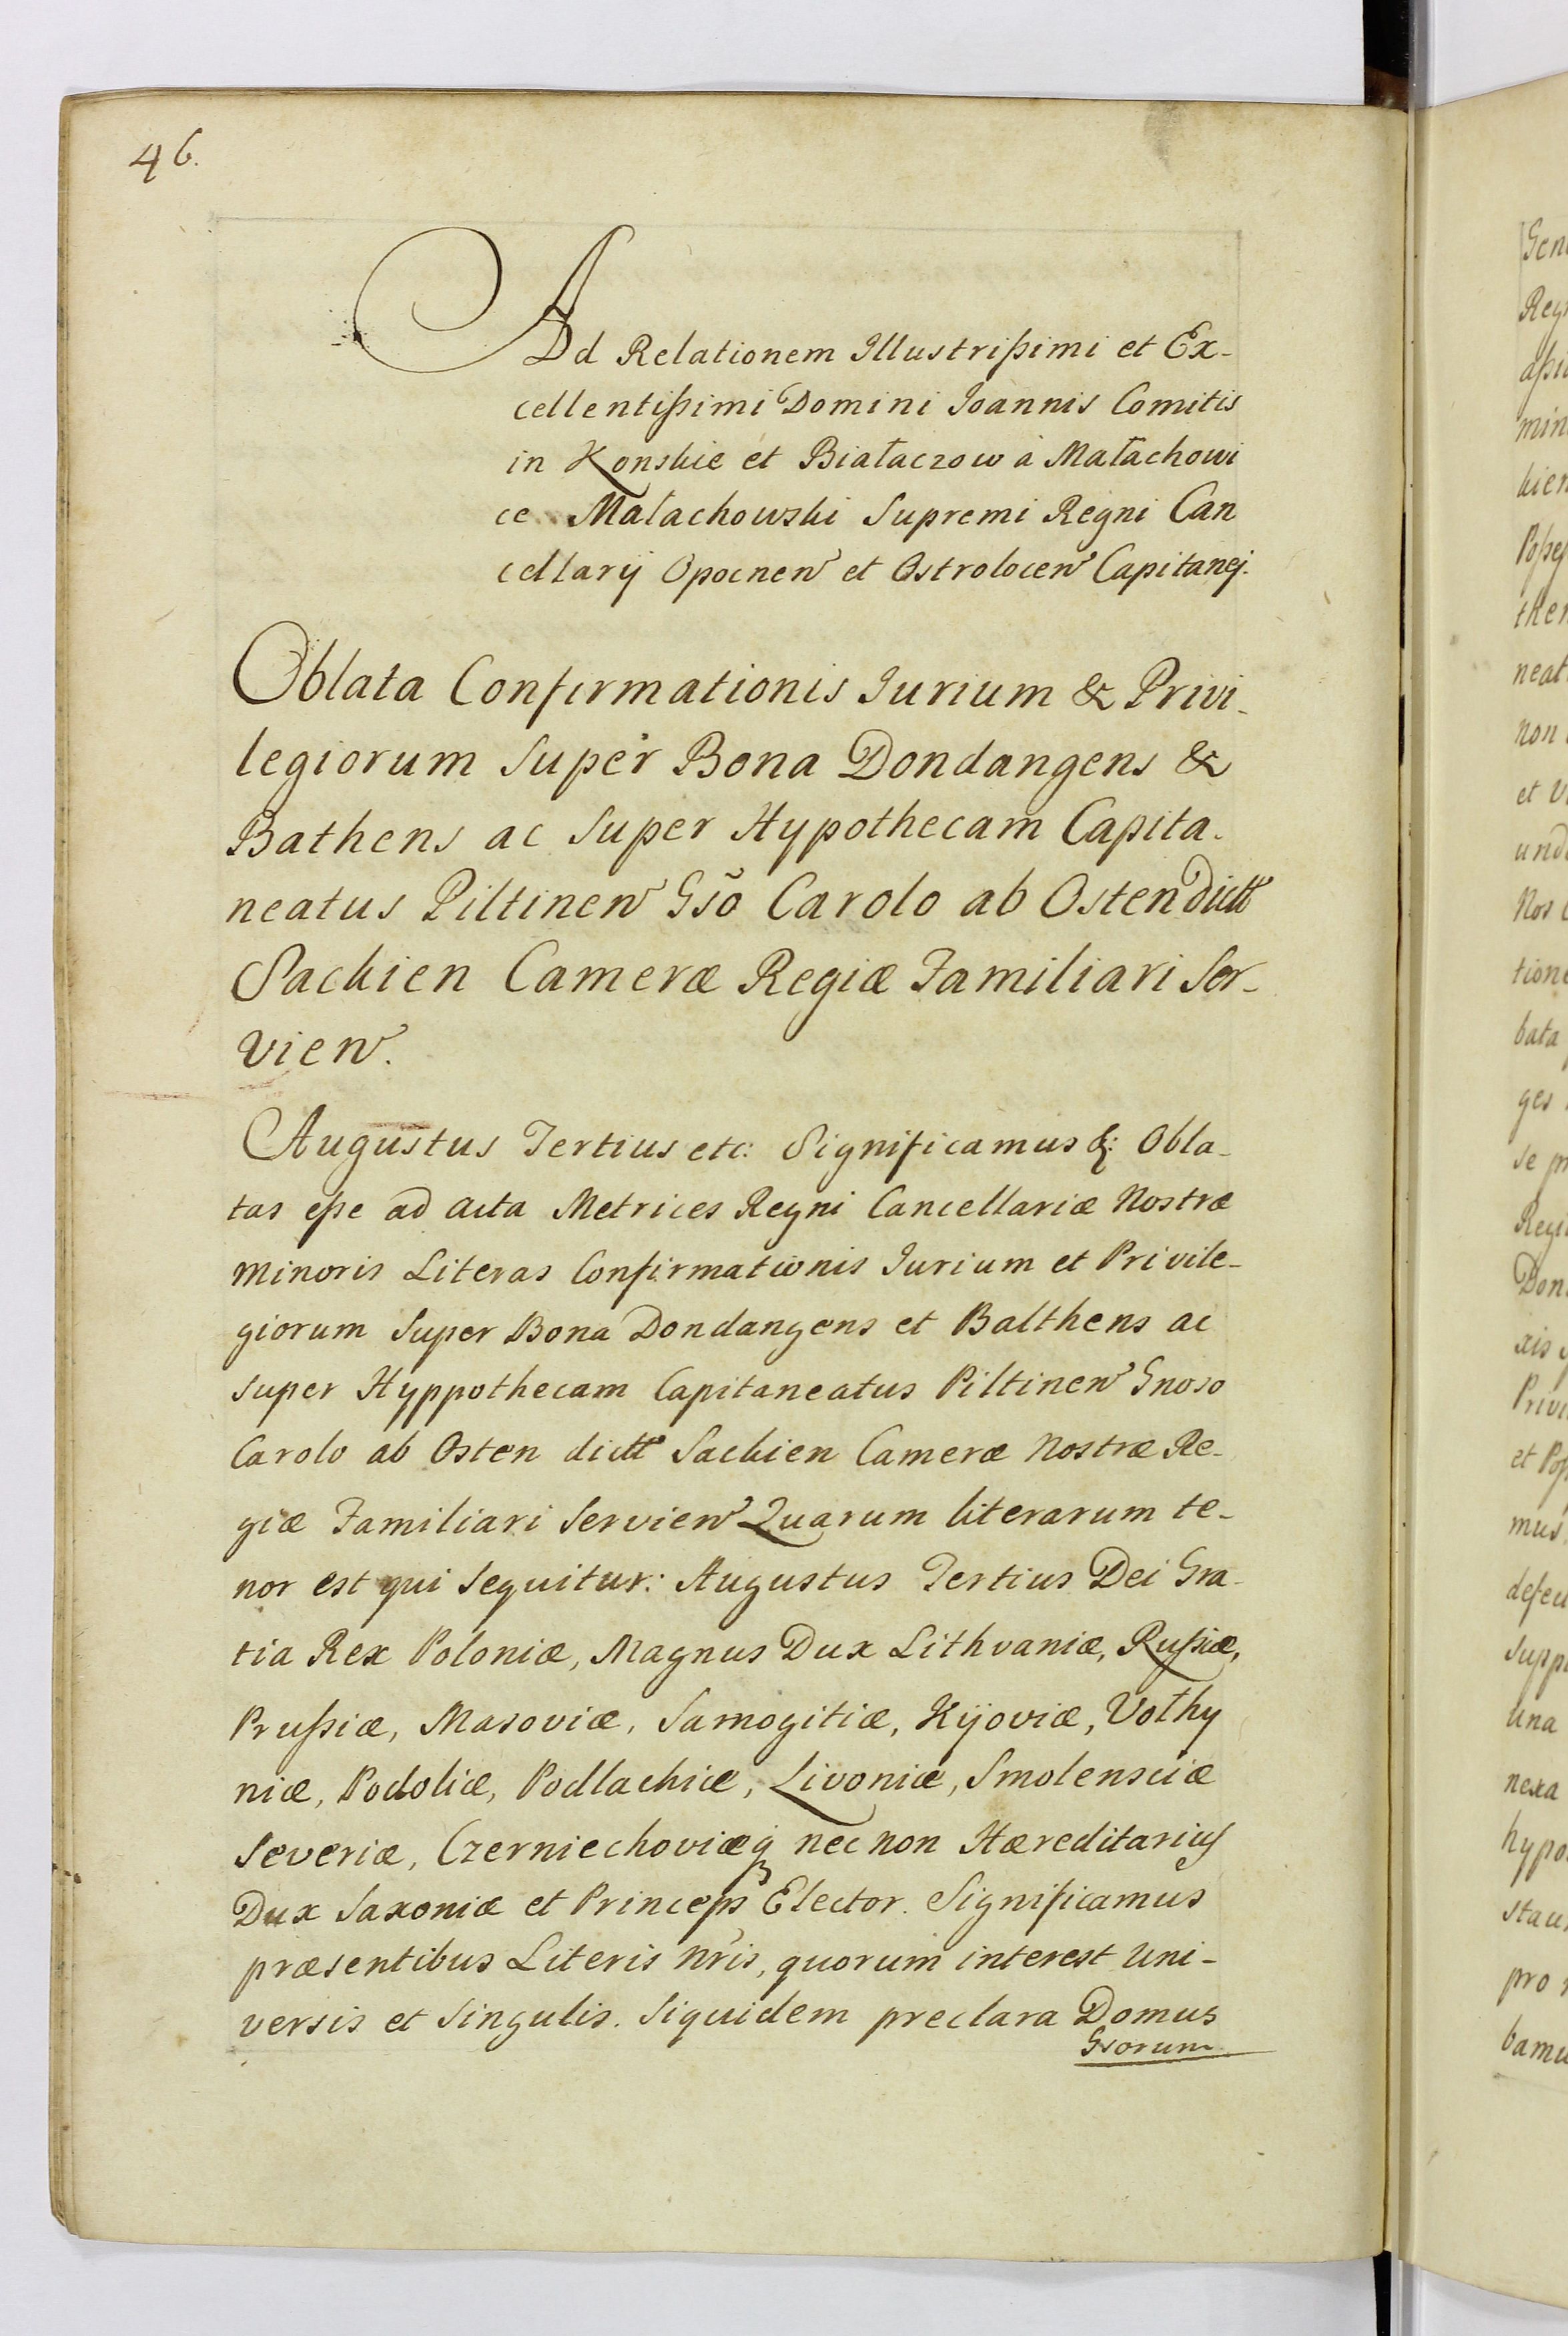 46.
Ad Relationem Illustrißimi et Ex-
cellentißimi Domini Joannis Comitis
in Konskie et Białaczow à Małachowi
ce Małachowski Supremi Regni Can
cellarij Opocnen et Ostrolocen Capitanej.
Oblata Confirmationis Jurium & Privi-
legiorum Super Bona Dondangens &
Bathens ac Super Hypothecam Capita-
neatus Piltinen Gsõ Carolo ab Osten dictt
Sackien Cameræ Regiæ Familiari Ser-
vien.
Augustus Tertius etc: Significamus &: Obla-
tas eße ad acta Metrices Regni Cancellariæ Nostræ
Minoris Literas Confirmationis Jurium et Privile-
giorum Super Bona Dondangens et Balthens ac
super Hyppothecam Capitaneatus Piltinen Gnoso
Carolo ab Osten dictt Sackien Cameræ Nostræ Re-
giæ Familiari Servien Quarum literarum te-
nor est qui Sequitur: Augustus Tertius Dei Gra-
tia Rex Poloniæ, Magnus Dux Lithvaniæ, Rußiæ,
Prußiæ, Masoviæ, Samogitiæ, Kijoviæ, Vołhy
niæ, Podoliæ, Podlachiæ, Livoniæ, Smolensciæ
Severiæ, Czerniechoviæq nec non Hæreditarius
Dux Saxoniæ et Princeps Elector. Significamus
præsentibus Literis nris, quorum interest Uni-
versis et Singulis. Siquidem preclara Domus
Gsorum